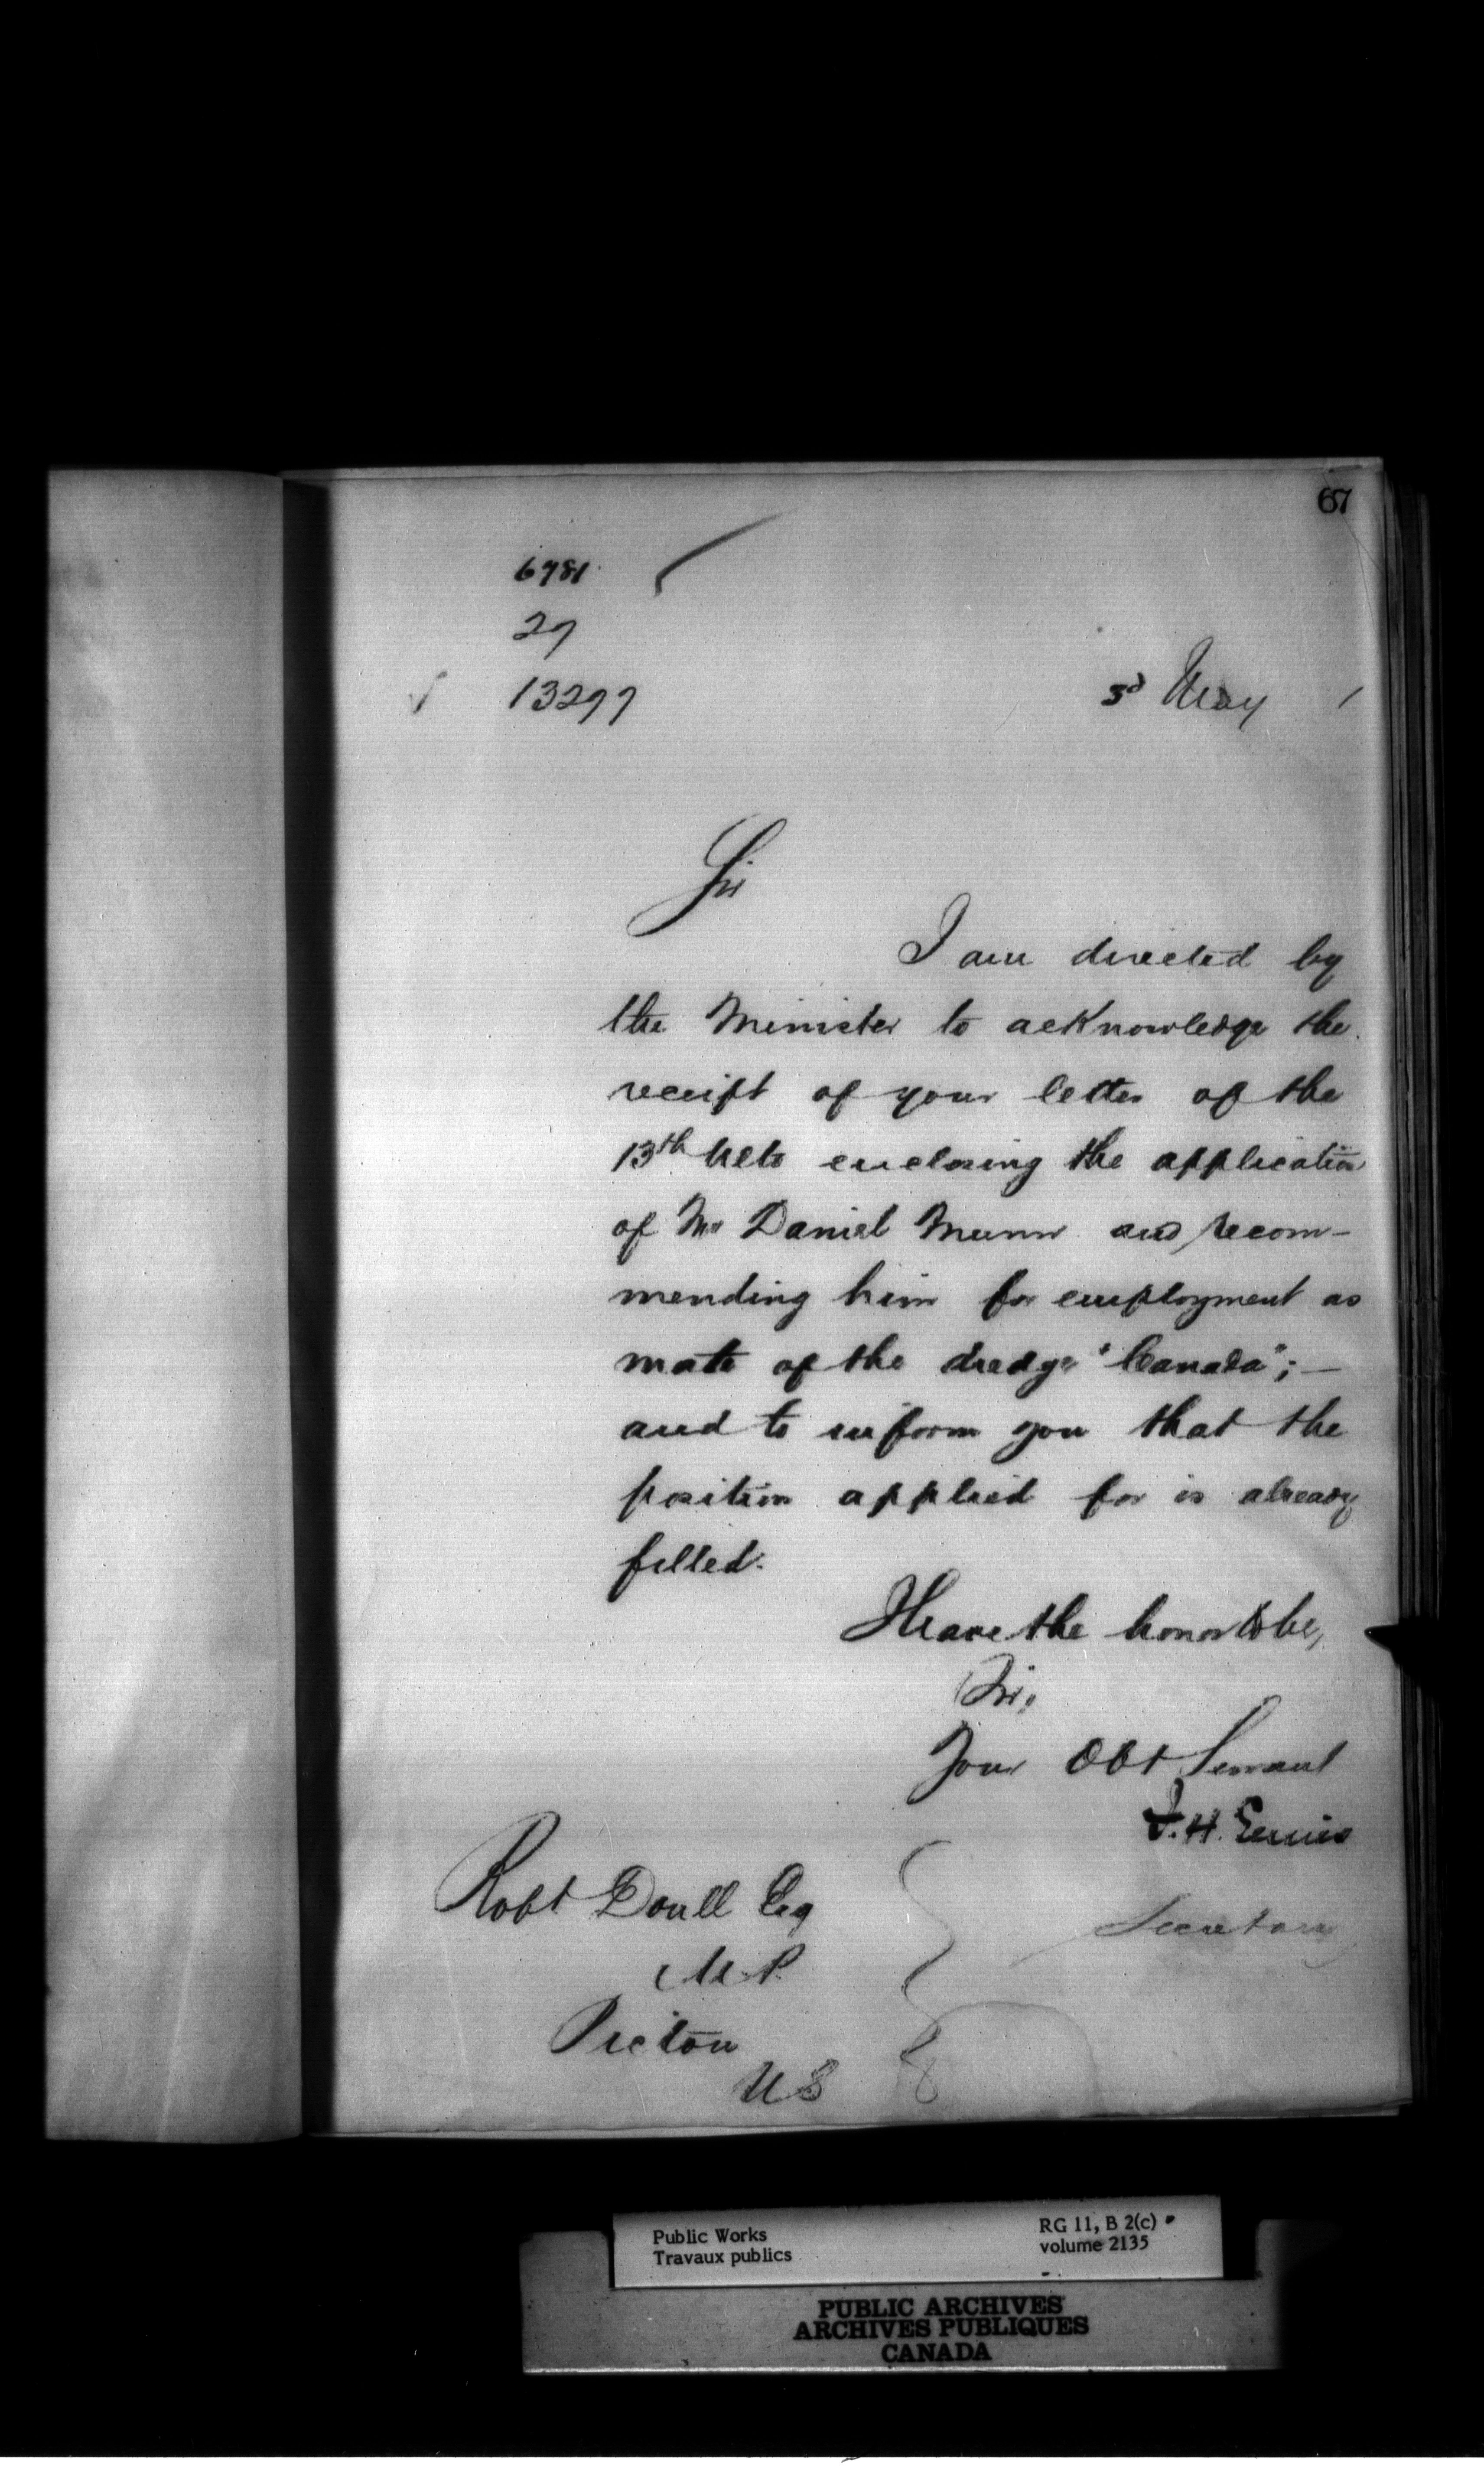 67
6781
27
13297
3d May 1
Sir
I am directed by
the Minister to acknowledge the
receipt of your letter of the
13th Ulto enclosing the application
of Mr Daniel Munro and recom-
mending him for employment as
mate of the dredge "Canada"; —
and to inform you that the
position applied for is already
filled.
I have the honor to be,
Sir,
Your Obt Servant
F. H. Ennis
Secretary
Robt Doull Esq
M.P.
Pictou
N S
Public Works
Travaux publics
RG 11, B 2(c)
volume 2135
PUBLIC ARCHIVES
ARCHIVES PUBLIQUES
CANADA